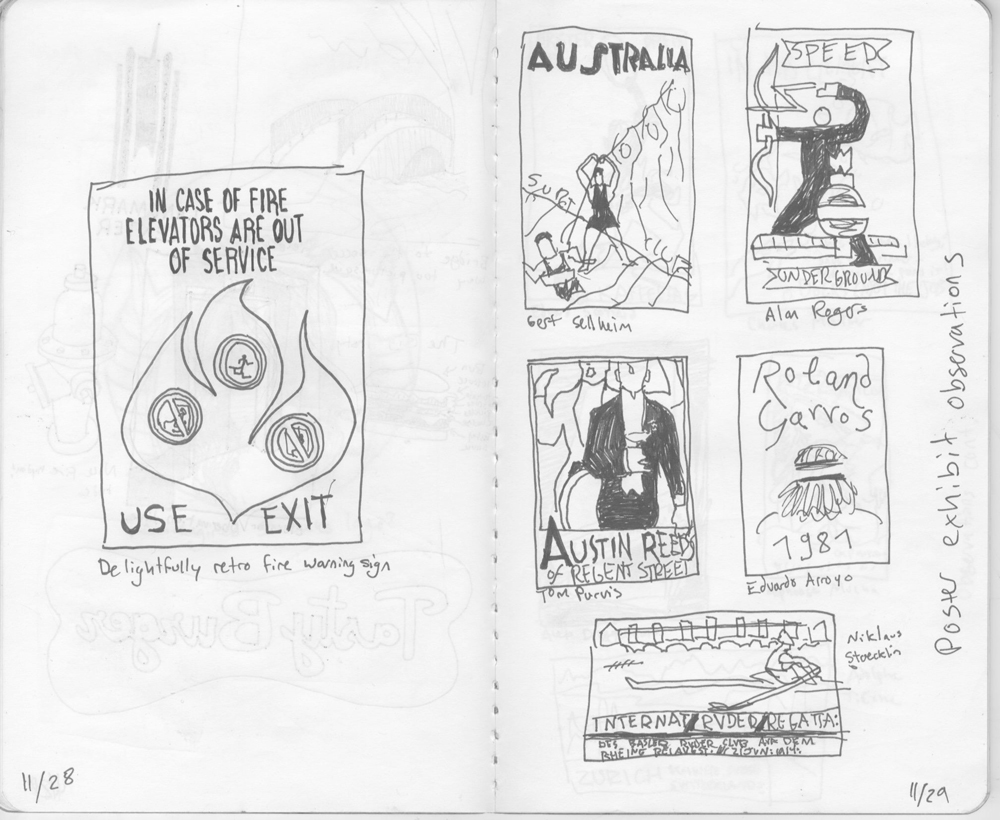 IN CASE OF FIRE
ELEVATORS ARE OUT
OF SERVICE
USE EXIT
Delightfully retro fire warning sign
11/28
AUSTRALIA
SURF
Gert Sellheim
SPEED
UNDERGROUND
Alan Rogers
AUSTIN REED'S
OF REGENT STREET
Tom Purvis
Roland
Garros
1981
Eduardo Arroyo
INTERNAT/RUDER/REGATTA:
DES BASLER RUDER CLUB AUF DEM
Niklaus
Stoecklin
Poster exhibit observations
11/29
Tasty Burger